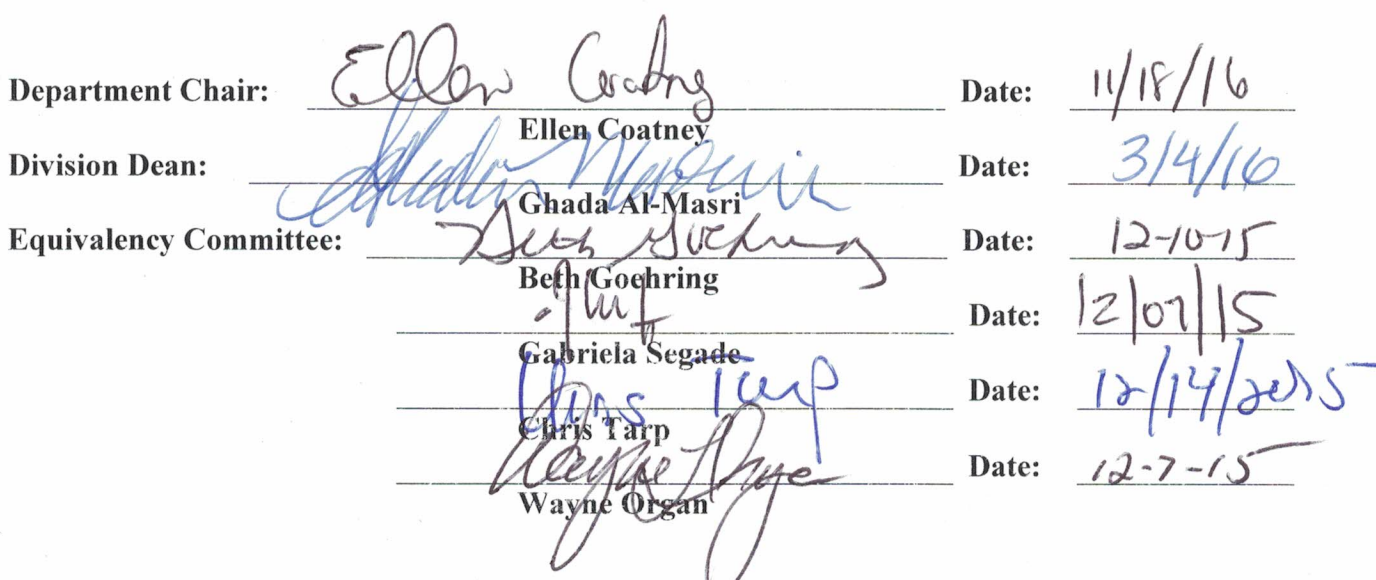 Department Chair: Ellen Coatney Date: 11/18/16
Ellen Coatney
Division Dean: Date: 3/4/16
Ghada Al-Masri
Equivalency Committee: Beth Goehring Date: 12-10-15
Beth Goehring
Date: 12/07/15
Gabriela Segade
Chris Tarp Date: 12/14/2015
Chris Tarp
Wayne Organ Date: 12-7-15
Wayne Organ